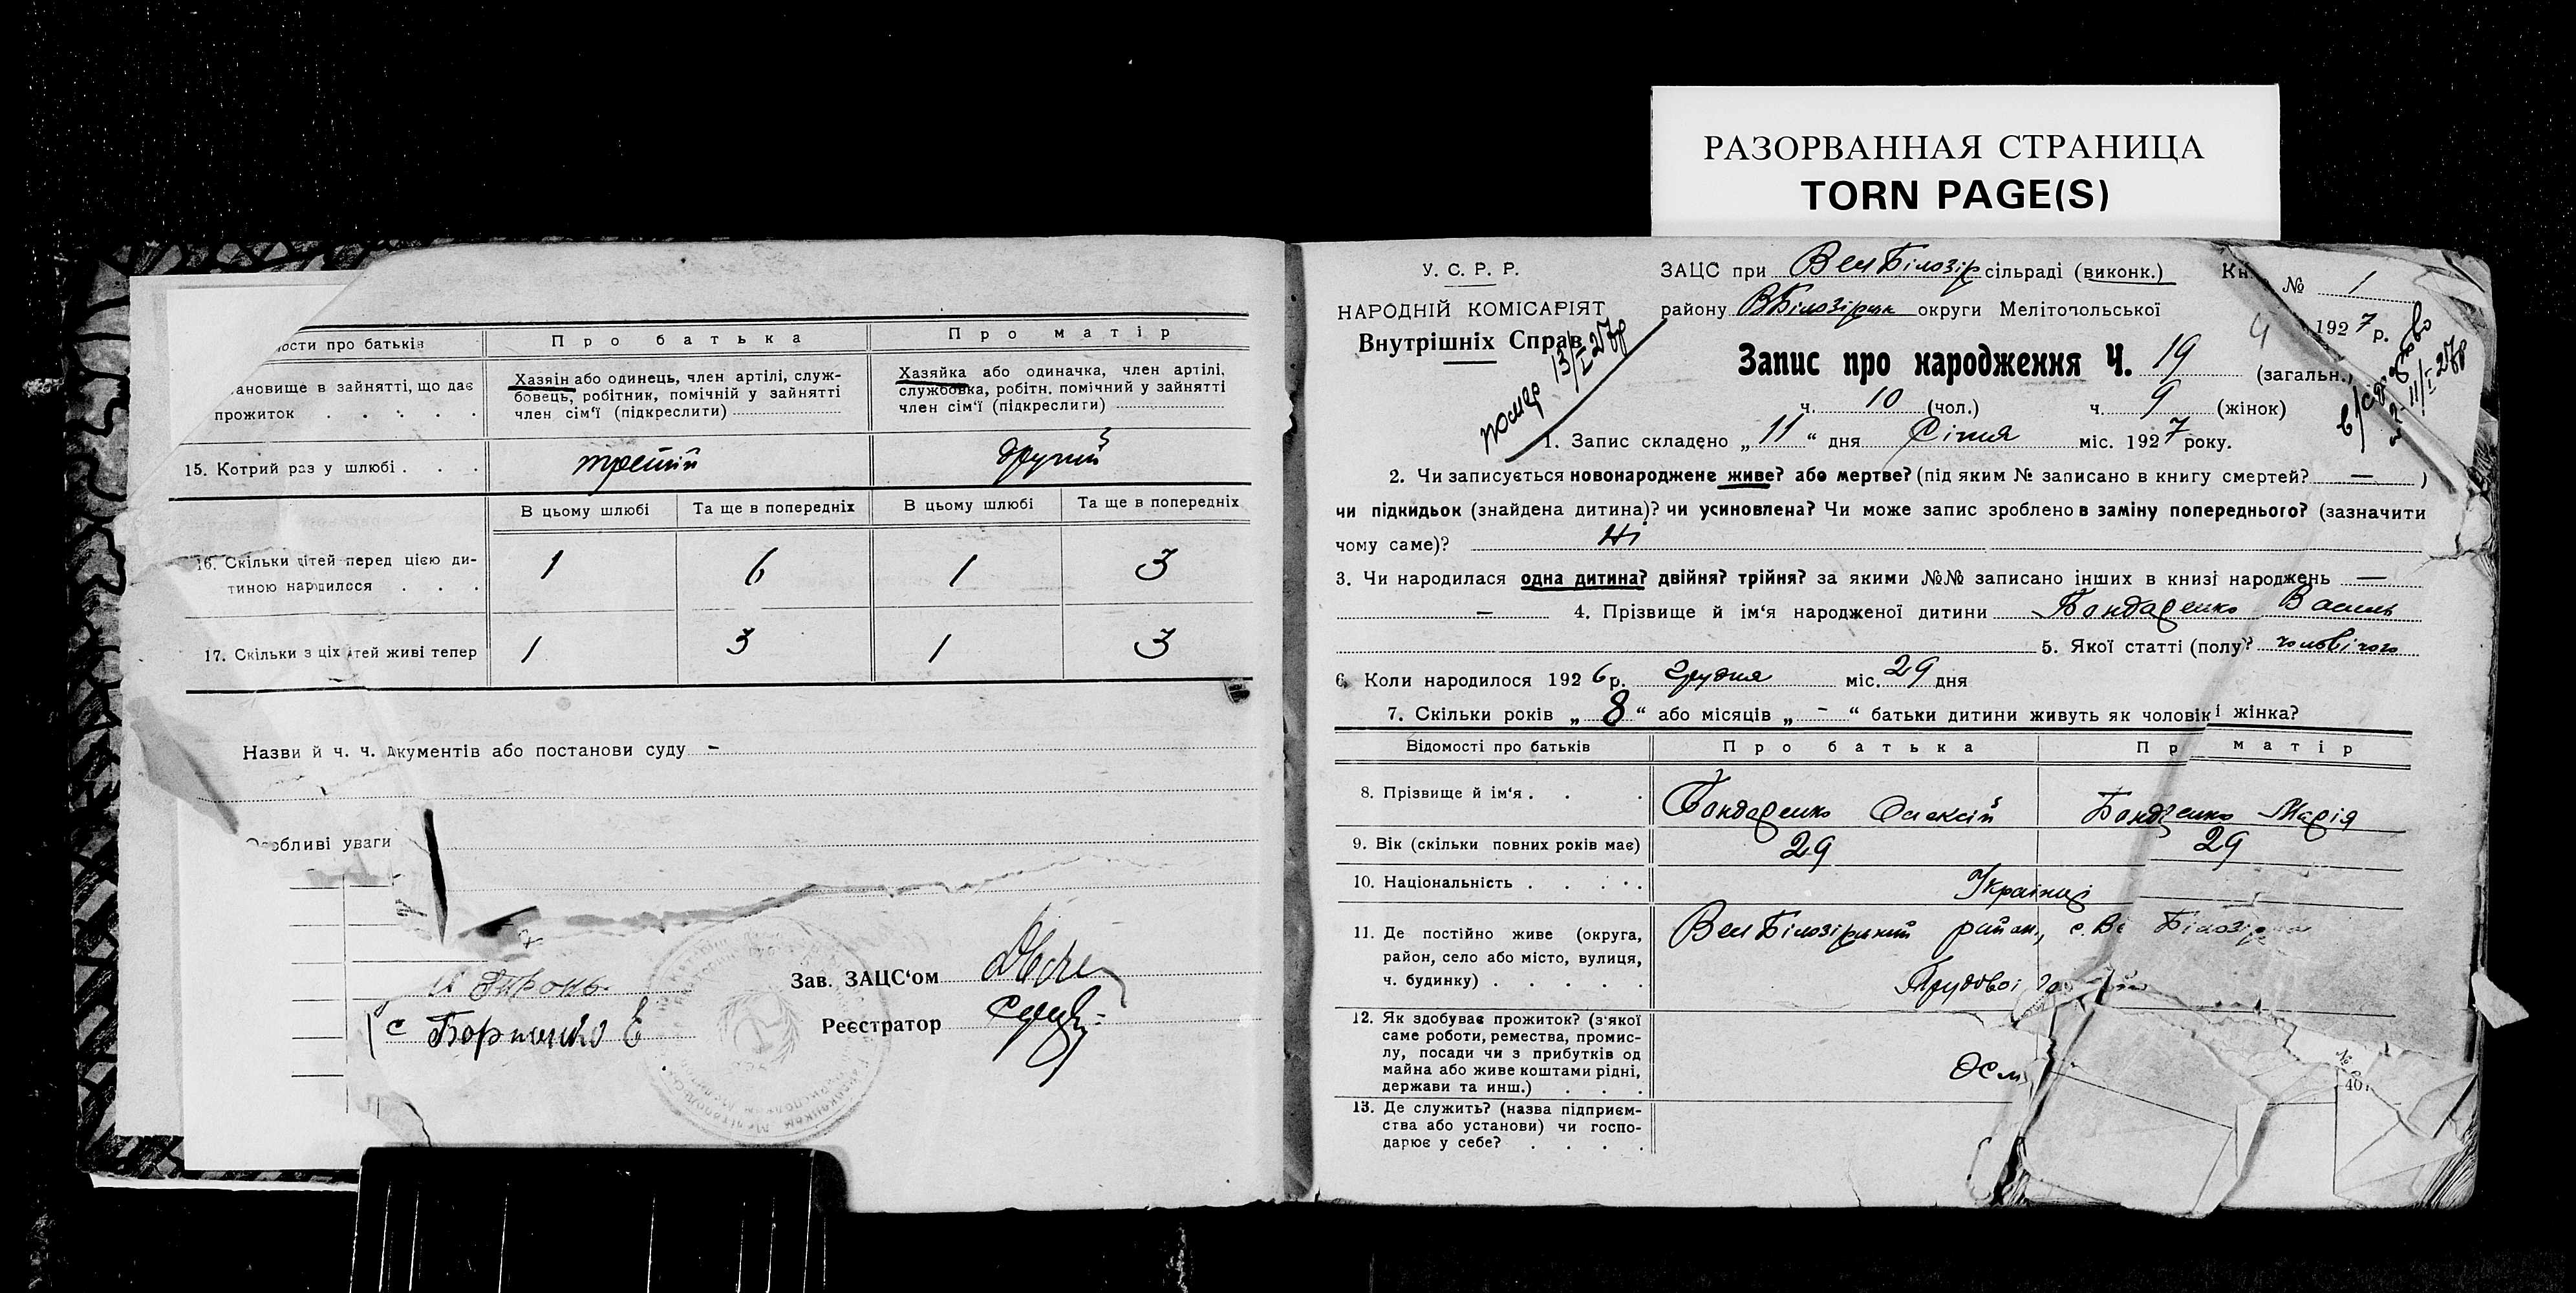 РАЗОРВАННАЯ СТРАНИЦА
TORN PAGE(S)
ости про батьків
Про батька
Про матір
ановище в зайнятті, що дає
прожиток . . . .
Хазяін або одинець, член артілі, служ-
бовець, робітник, помічній у зайнятті
член сім‘ї (підкреслити)
Хазяйка або одиначка, член артілі,
службовка, робітн. помічний у зайнятті
член сім‘ї (підкреслити)
15. Котрий раз у шлюбі . . .
третій
другий
В цьому шлюбі
Та ще в попередніх
В цьому шлюбі
Та ще в попередніх
16. Скільки дітей перед цією ди-
тиною народилося . . .
1
6
1
3
17. Скільки з ціх дітей живі тепер
1
3
1
3
Назви й ч. ч. документів або постанови суду –
Особливі уваги
Зав. ЗАЦС‘ом
Реєстратор
У. С. Р. Р.
НАРОДНІЙ КОМІСАРІЯТ
Внутрішніх Справ
помер 13/I 27р
ЗАЦС при Вел Білозір сільраді (виконк.)
Кн. № 1
району ВБілозірськ округи Мелітопольської
1927 р.
Запис про народження Ч. 19 (загальн.)
11/I 27р
ч. 10 (чол.) ч. 9 (жінок)
1. Запис складено „ 11 “ дня Січня міс. 1927 року.
2. Чи записується новонароджене живе? або мертве? (під яким № записано в книгу смертей? — )
чи підкидьок (знайдена дитина)? чи усиновлена? Чи може запис зроблено в заміну попереднього? (зазначити
чому саме)? Ні
3. Чи народилася одна дитина? двійня? трійня? за якими №№ записано інших в книзі народжень —
— 4. Прізвище й ім‘я народженої дитини Бондаренко Василь
5. Якої статті (полу)? чоловічого
6. Коли народилося 1926 р. Грудня міс. 29 дня
7. Скільки років „ 8 “ або місяців „ - “ батьки дитини живуть як чоловік і жінка?
Відомості про батьків
Про батька
Пр матір
8. Прізвище й ім‘я . . .
Бондаренко Олексій
Бондренко Марія
9. Вік (скільки повних років має)
29
29
10. Національність . . . . .
Українці
11. Де постійно живе (округа,
район, село або місто, вулиця,
ч. будинку) . . . . .
Вел Білозірський район, с. Ве Білозір
Трудової
12. Як здобуває прожиток? (з‘якої
саме роботи, ремества, промис-
лу, посади чи з прибутків од
майна або живе коштами рідні,
держави та инш.) . . .
13. Де служить? (назва підприєм-
ства або установи) чи госпо-
дарює у себе? . . . .